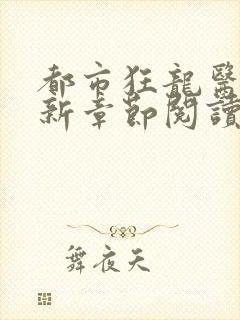 都市狂龍醫
新章節閱讀
舞夜天